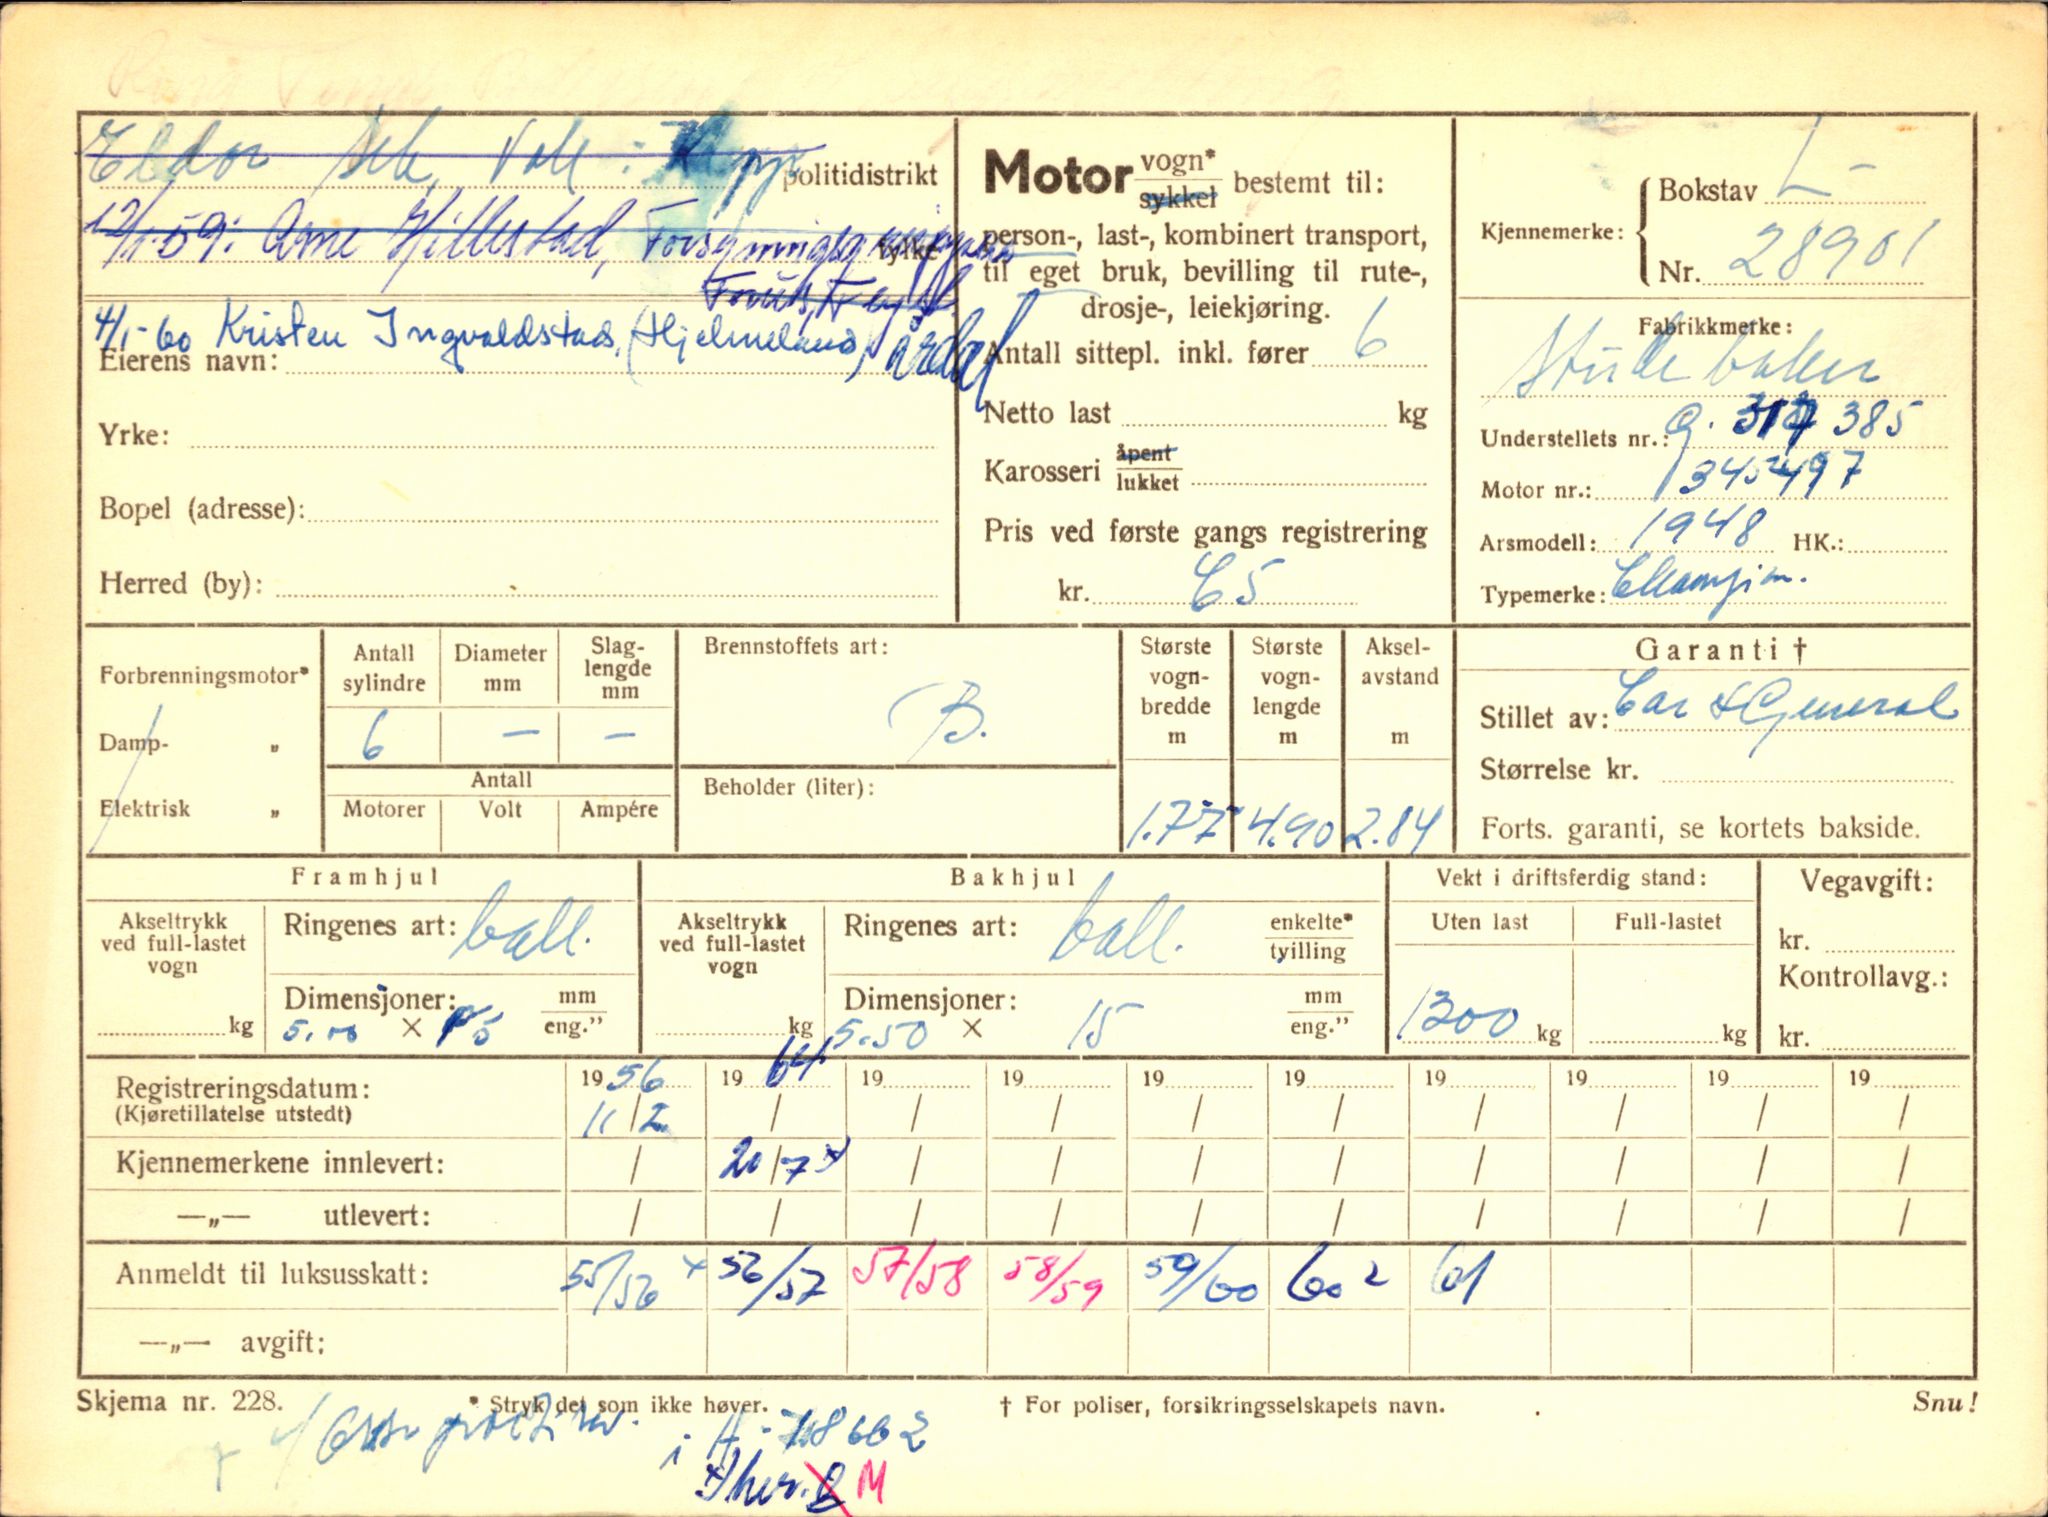 Eldor politidistrikt
12/1-59: Arne Hillestad, Forsyningsgruppen fylke
4/1-60 Kristen Ingvaldstad, (Hjelmeland) Årdal
Eierens navn:
Yrke:
Bopel (adresse):
Herred (by):
Motor vogn* sykkel bestemt til:
person-, last-, kombinert transport,
til eget bruk, bevilling til rute-,
drosje-, leiekjøring.
Antall sittepl. inkl. fører 6
Netto last kg
Karosseri åpent lukket
Pris ved første gangs registrering
kr. C5
Kjennemerke: Bokstav L-
Nr. 28901
Fabrikkmerke:
Studebaker
Understellets nr.: G. 385
Motor nr.:
Arsmodell: 1948 HK.:
Typemerke: Champion.
Forbrenningsmotor*
Damp- „
Elektrisk „
Antall sylindre Diameter mm Slag- lengde mm
6 — —
Antall
Motorer Volt Ampére
Brennstoffets art:
B.
Beholder (liter):
Største vogn- bredde m
1.77
Største vogn- lengde m
4.90
Aksel- avstand m
2.84
Garanti †
Stillet av: Car & General
Størrelse kr.
Forts. garanti, se kortets bakside.
Framhjul
Akseltrykk ved full-lastet vogn
kg
Ringenes art: ball.
Dimensjoner: mm
× eng.”
Bakhjul
Akseltrykk ved full-lastet vogn
kg
Ringenes art: ball. enkelte* tvilling
Dimensjoner: mm
5.50 × 15 eng.”
Vekt i driftsferdig stand:
Uten last Full-lastet
1300 kg kg
Vegavgift:
kr.
Kontrollavg.:
kr.
Registreringsdatum: 1956 1964 19 19 19 19 19 19 19 19
(Kjøretillatelse utstedt) 11/2 / / / / / / / / /
Kjennemerkene innlevert: / 20/7 / / / / / / / /
—„— utlevert: / / / / / / / / / /
Anmeldt til luksusskatt: 55/56 56/57 57/58 58/59 59/60 60 2 61
—„— avgift:
Skjema nr. 228. * Stryk det som ikke høver. † For poliser, forsikringsselskapets navn. Snu!
M